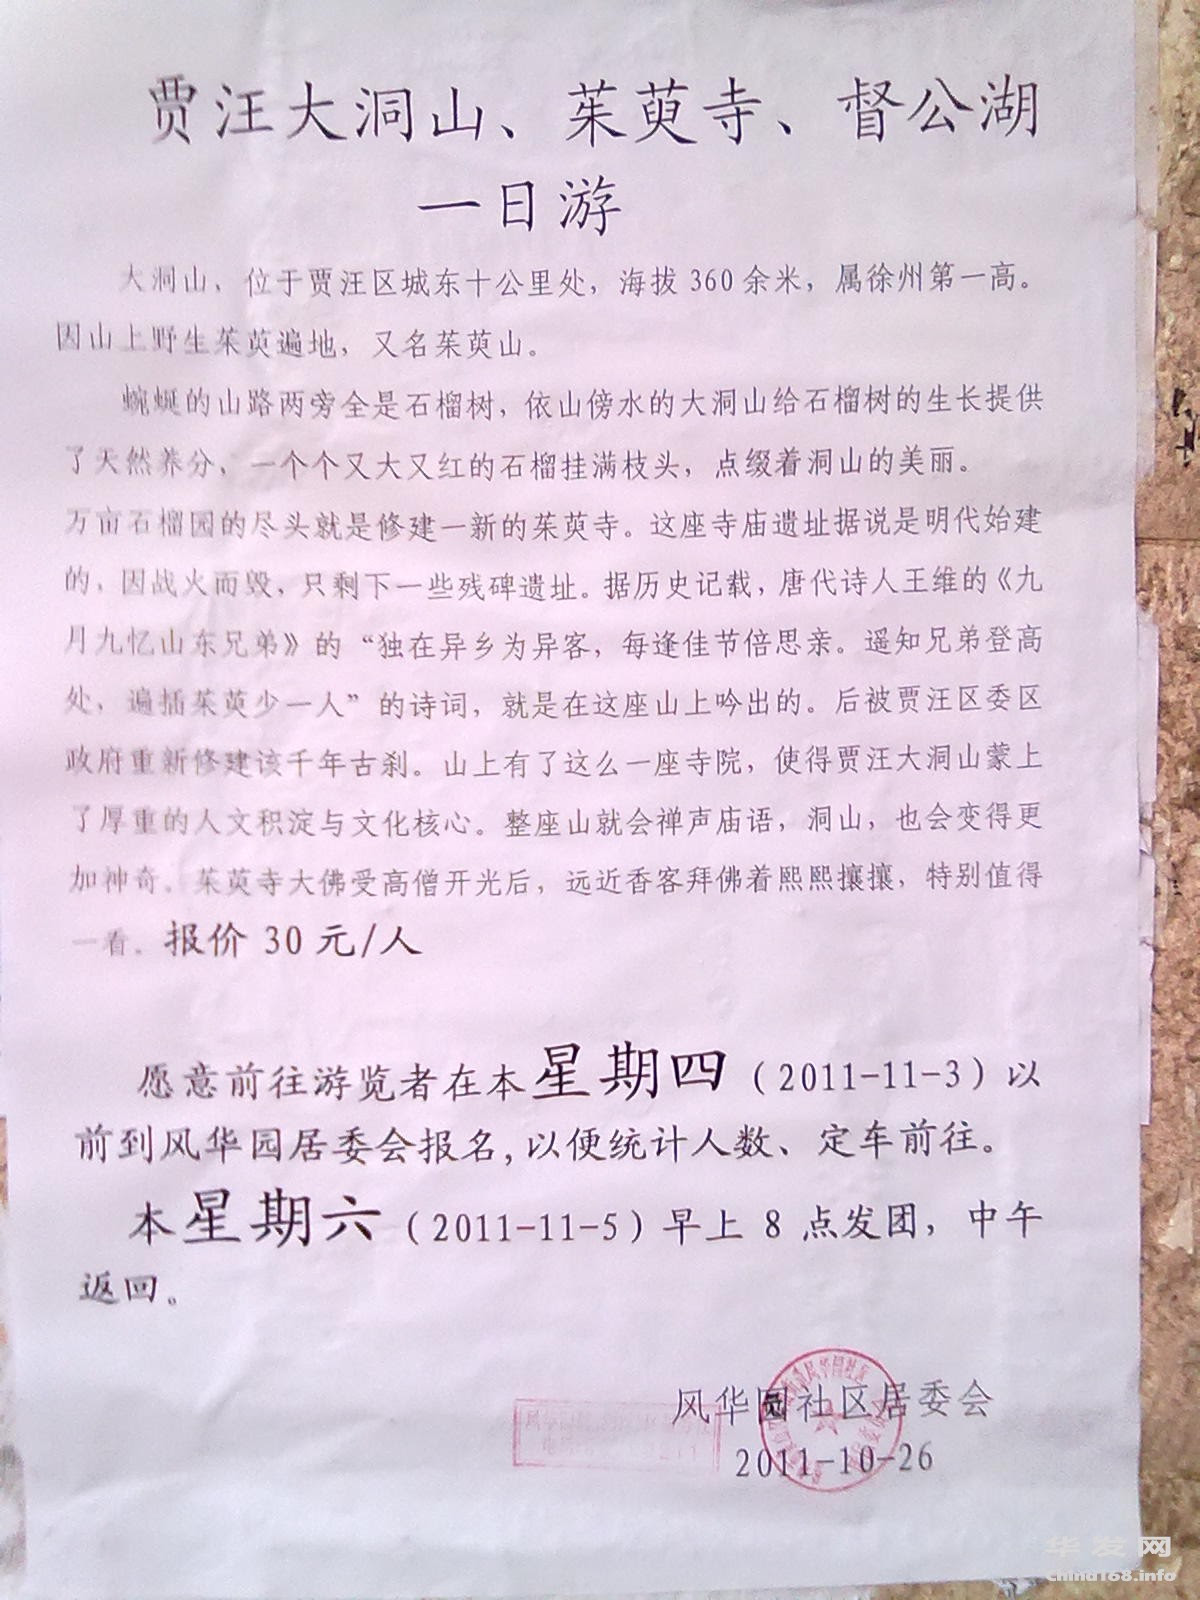 贾汪大洞山、茱萸寺、督公湖
一日游
大洞山，位于贾汪区城东十公里处，海拔360余米，属徐州第一高。
因山上野生茱萸遍地，又名茱萸山。
蜿蜒的山路两旁全是石榴树，依山傍水的大洞山给石榴树的生长提供
了天然养分，一个个又大又红的石榴挂满枝头，点缀着洞山的美丽。
万亩石榴园的尽头就是修建一新的茱萸寺。这座寺庙遗址据说是明代始建
的，因战火而毁，只剩下一些残碑遗址。据历史记载，唐代诗人王维的《九
月九忆山东兄弟》的“独在异乡为异客，每逢佳节倍思亲。遥知兄弟登高
处，遍插茱萸少一人”的诗词，就是在这座山上吟出的。后被贾汪区委区
政府重新修建该千年古刹。山上有了这么一座寺院，使得贾汪大洞山蒙上
了厚重的人文积淀与文化核心。整座山就会禅声庙语，洞山，也会变得更
加神奇。茱萸寺大佛受高僧开光后，远近香客拜佛着熙熙攘攘，特别值得
一看。报价30元/人
愿意前往游览者在本星期四（2011-11-3）以
前到风华园居委会报名,以便统计人数、定车前往。
本星期六（2011-11-5）早上8点发团，中午
返回。
风华园社区居委会
2011-10-26
华发网
china168.info